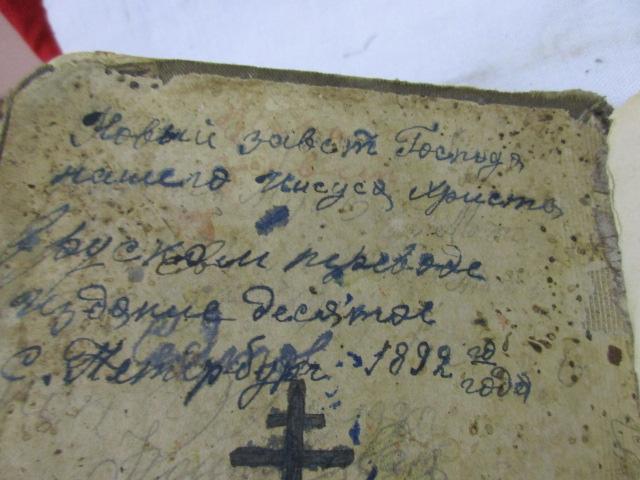 Новый завет Господа
нашего Иисуса Христа
в руском переводе
издание десятое
С. Петербург. 1892 го года